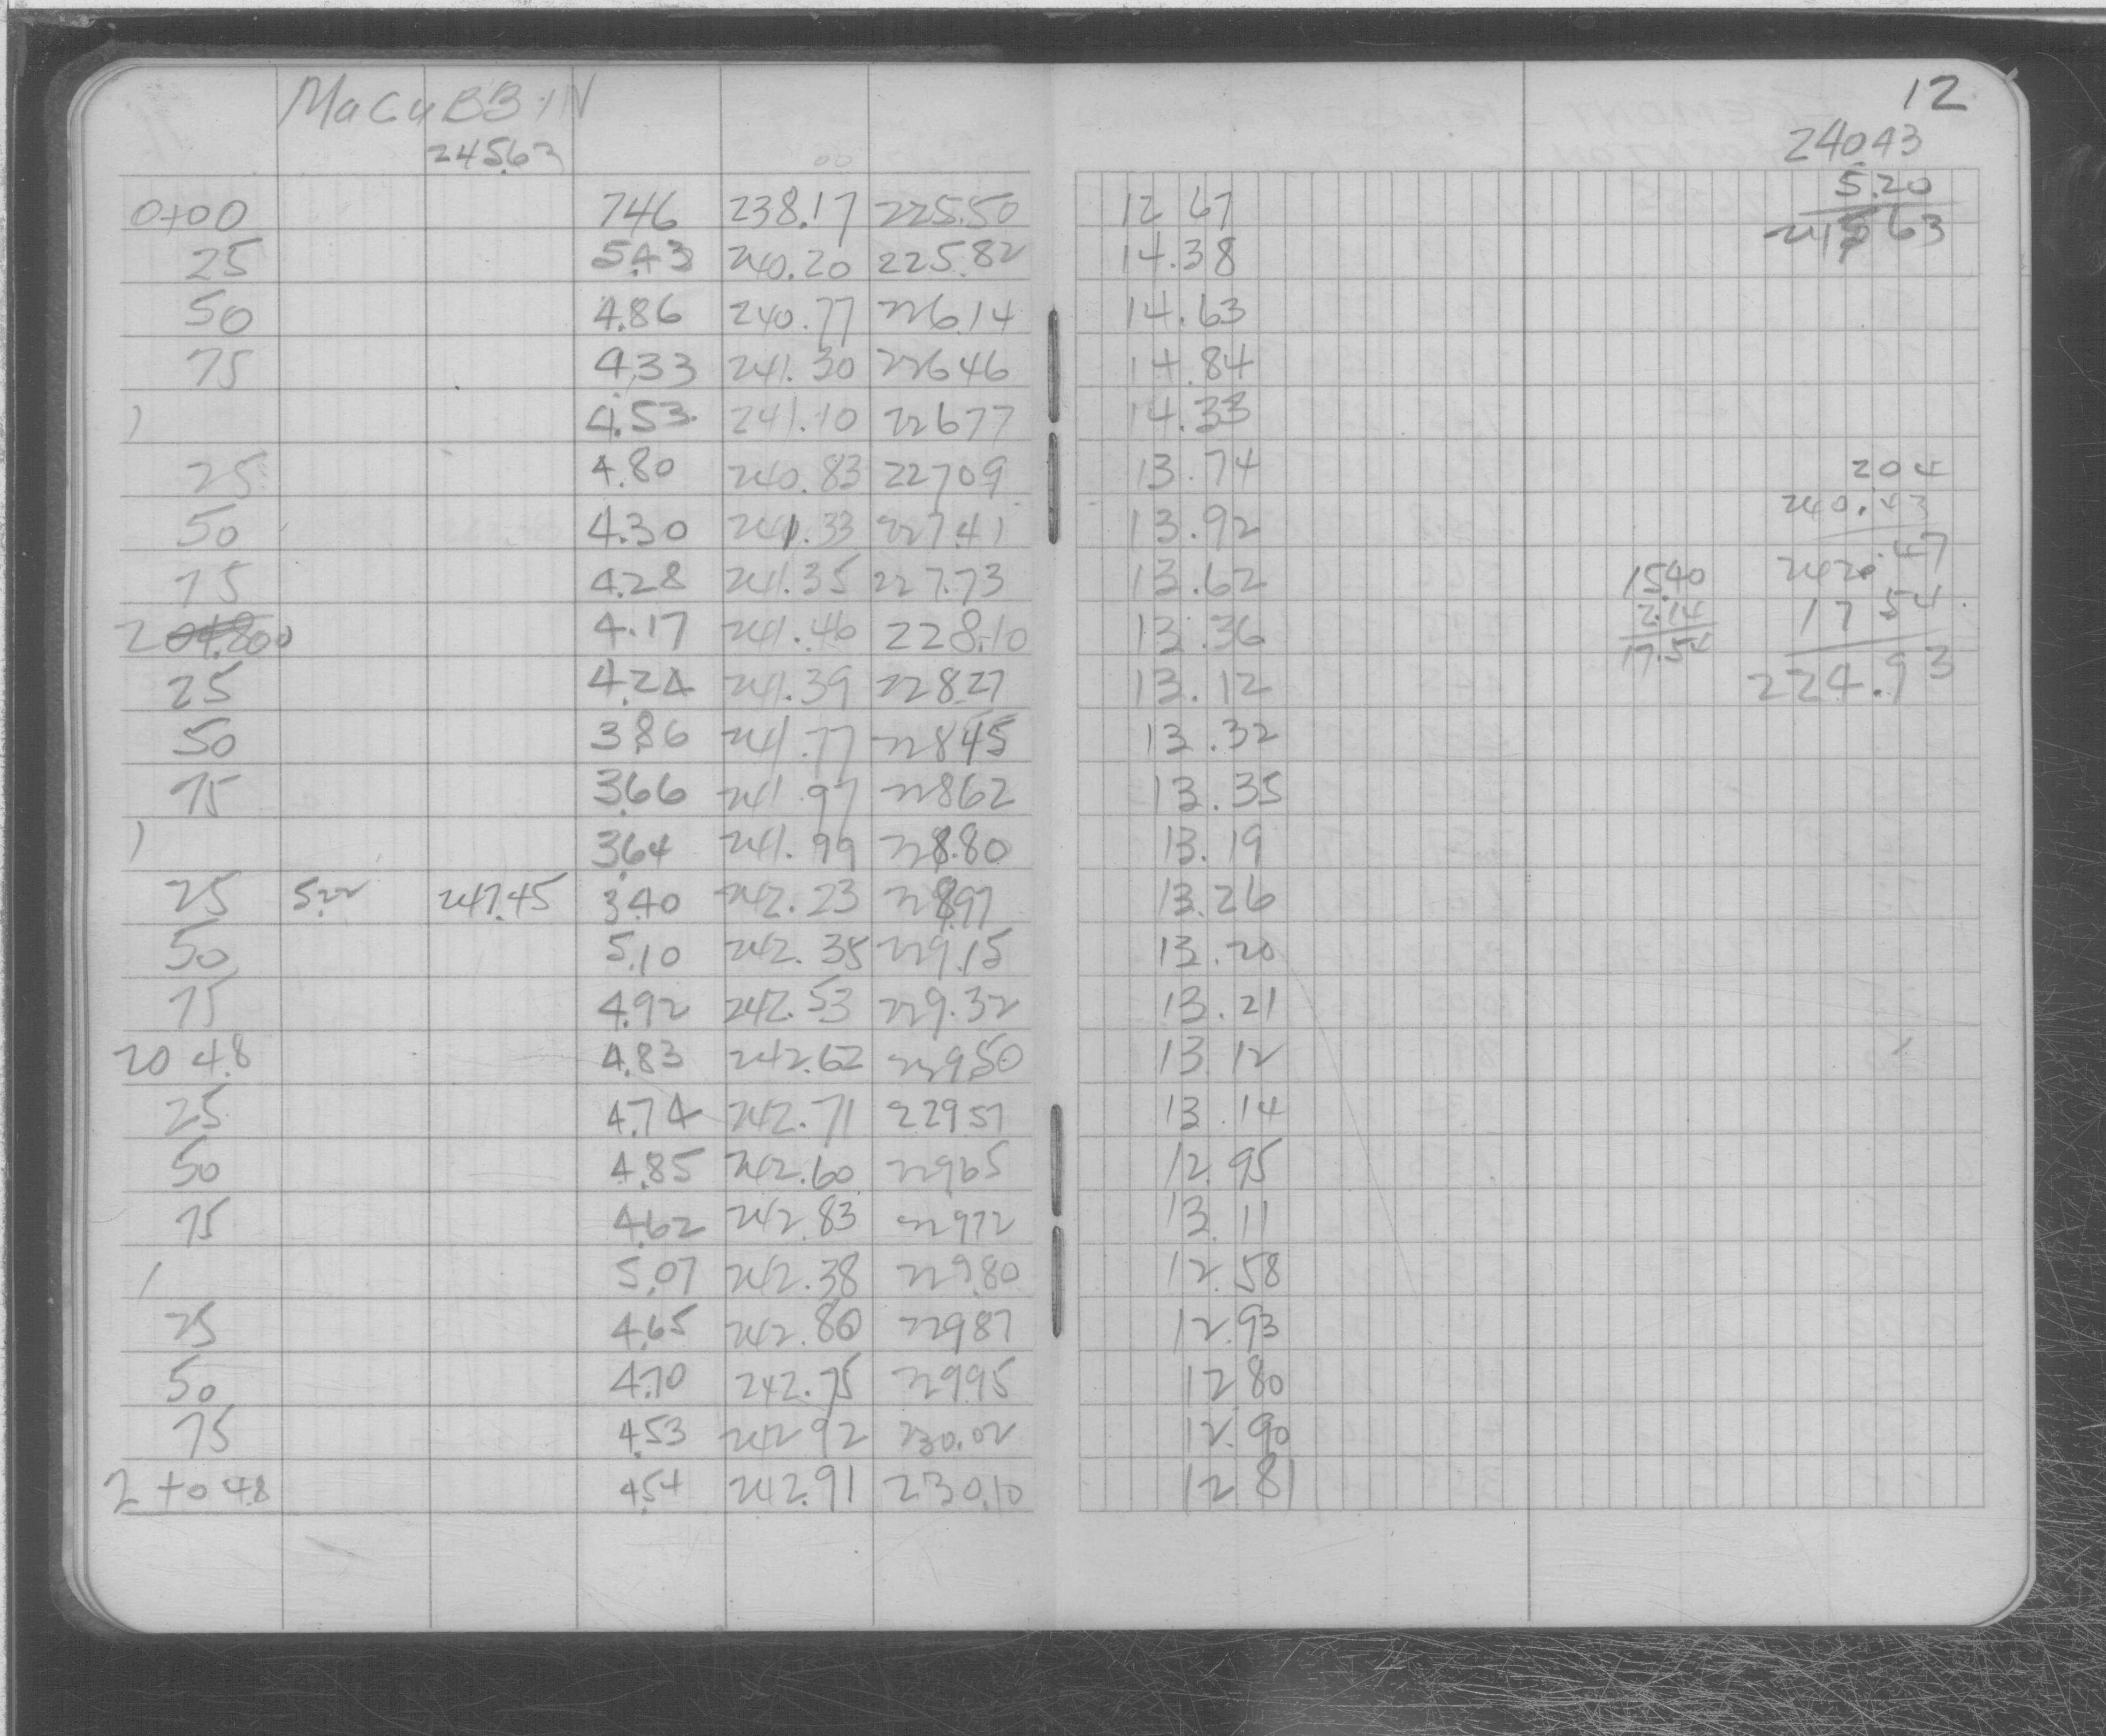 MaCuBBIN
12
24563
24043
5.20
24563
0+00 746 238.17 225.50 12 67
25 5.43 240.20 225.82 14.38
50 4.86 240.77 226.14 14.63
75 4.33 241.30 22646 14.84
1 4.53 241.10 22677 14.33
25 4.80 240.83 22709 13.74
50 4.30 241.33 227.41 13.92
75 4.28 241.35 227.73 13.62
2 00 4.17 241.46 228.10 13.36
25 4.24 241.39 22827 13.12
50 3.86 241.77 22845 13.32
75 3.66 241.97 22862 13.35
1 3.64 241.99 228.80 13.19
25 5.22 247.45 3.40 242.23 228.97 13.26
50 5.10 242.35 229.15 13.20
75 4.92 242.53 229.32 13.21
20 4.8 4.83 242.62 229.50 13 12
25 4.74 242.71 22957 13 14
50 4.85 242.60 22965 12.95
75 4.62 242.83 22972 13 11
1 5.07 242.38 229.80 12 58
25 4.65 242.80 22987 12.93
50 4.70 242.75 22995 12 80
75 4.53 242 92 230.02 12.90
2 +0 4.8 4.54 242.91 230.10 12 81
204
240.43
242.47
17 54
224.93
15.40
2.14
17.54